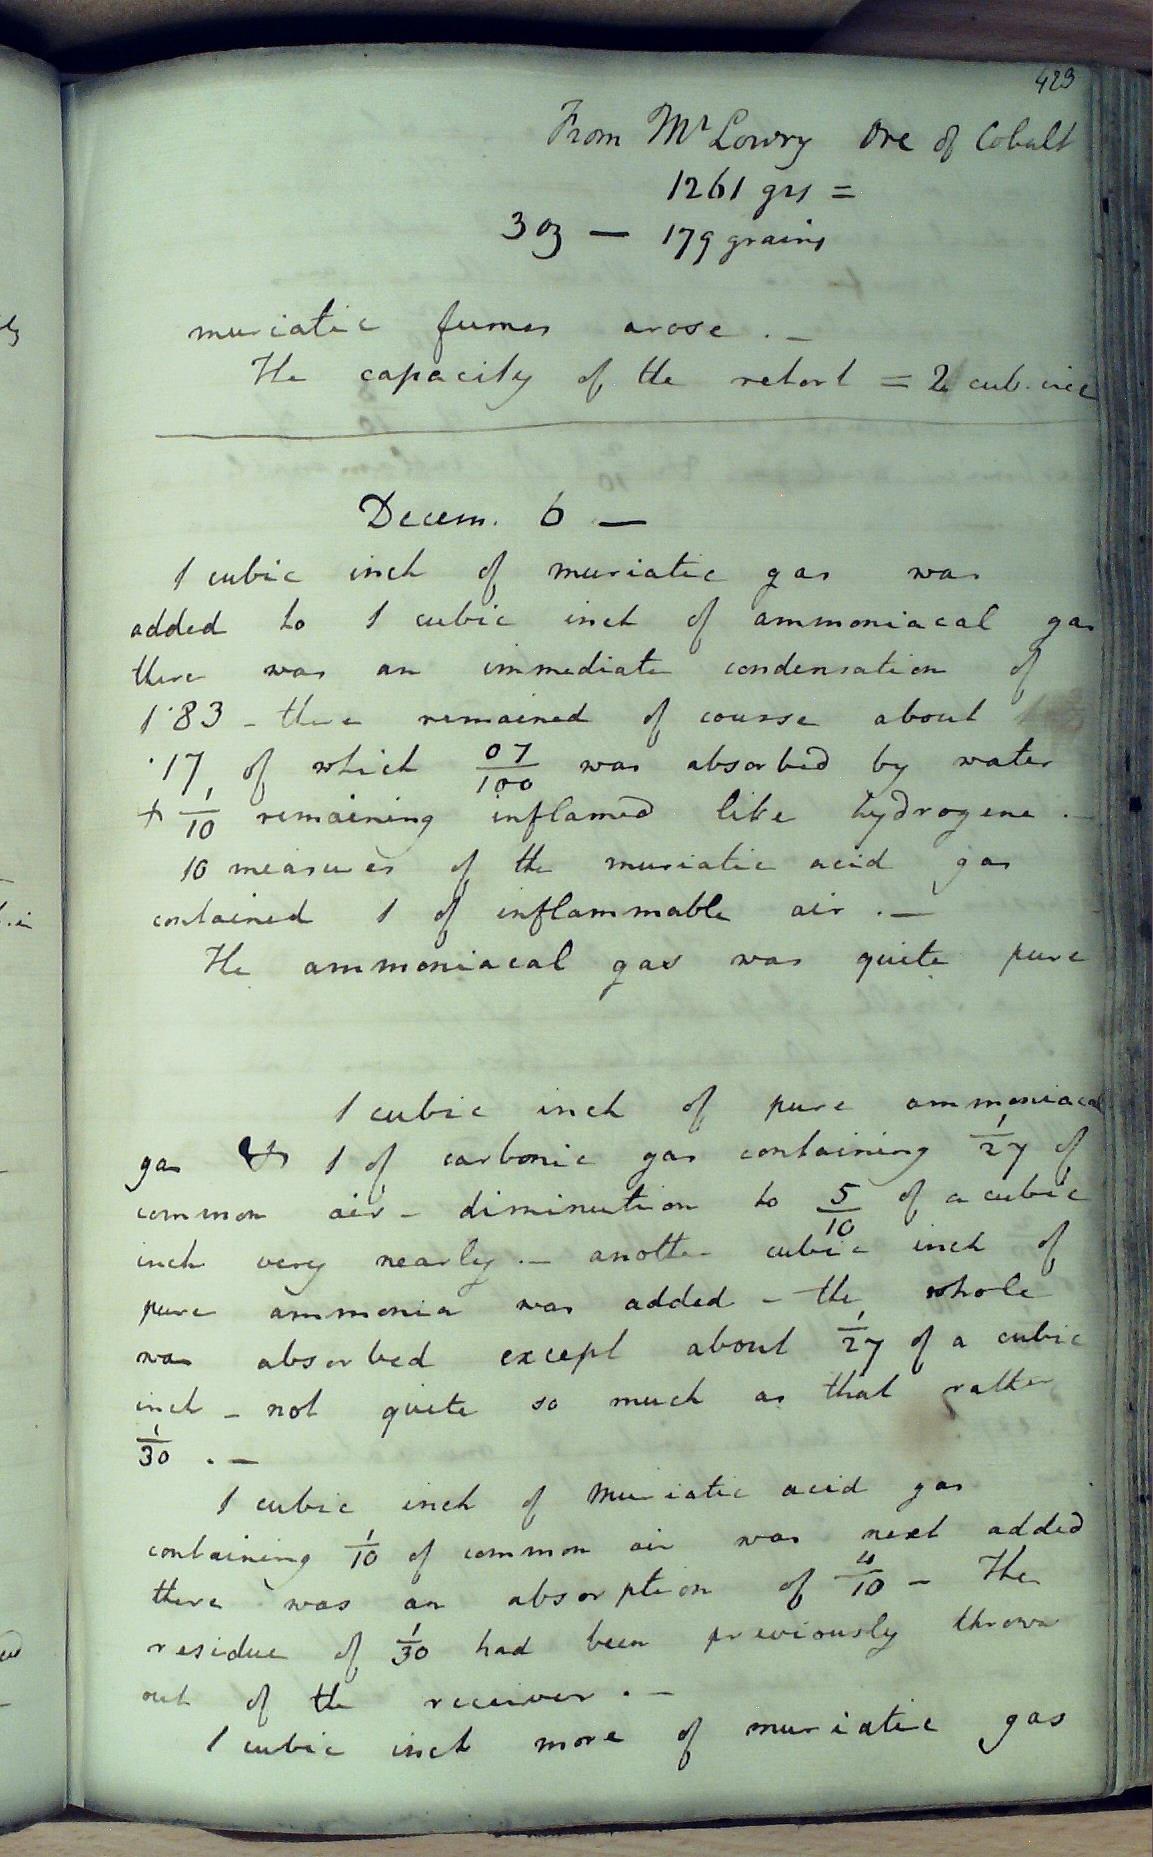 423
From Mr Lowry Ore of Cobalt
1261 grs =
3 oz — 179 grains
muriatic fumes arose. —
The capacity of the retort = 2 cub. inc
Decem. 6 —
1 cubic inch of muriatic gas was
added to 1 cubic inch of ammoniacal gas
there was an immediate condensation of
1·83 - there remained of course about
·17, of which 07/100 was absorbed by water
+ 1/10 remaining inflamed like hydrogene. —
10 measures of the muriatic acid gas
contained 1 of inflammable air. —
The ammoniacal gas was quite pure
1 cubic inch of pure ammoniacal
gas & 1 of carbonic gas containing 1/27 of
common air - diminution to 5/10 of a cubic
inch very nearly. — another cubic inch of
pure ammonia was added - the whole
was absorbed except about 1/27 of a cubic
inch - not quite so much as that rather
1/30 . —
1 cubic inch of muriatic acid gas
containing 1/10 of common air was next added
there was an absorption of /10 - The
residue of 1/30 had been previously thrown
out of the receiver. —
1 cubic inch more of muriatic gas